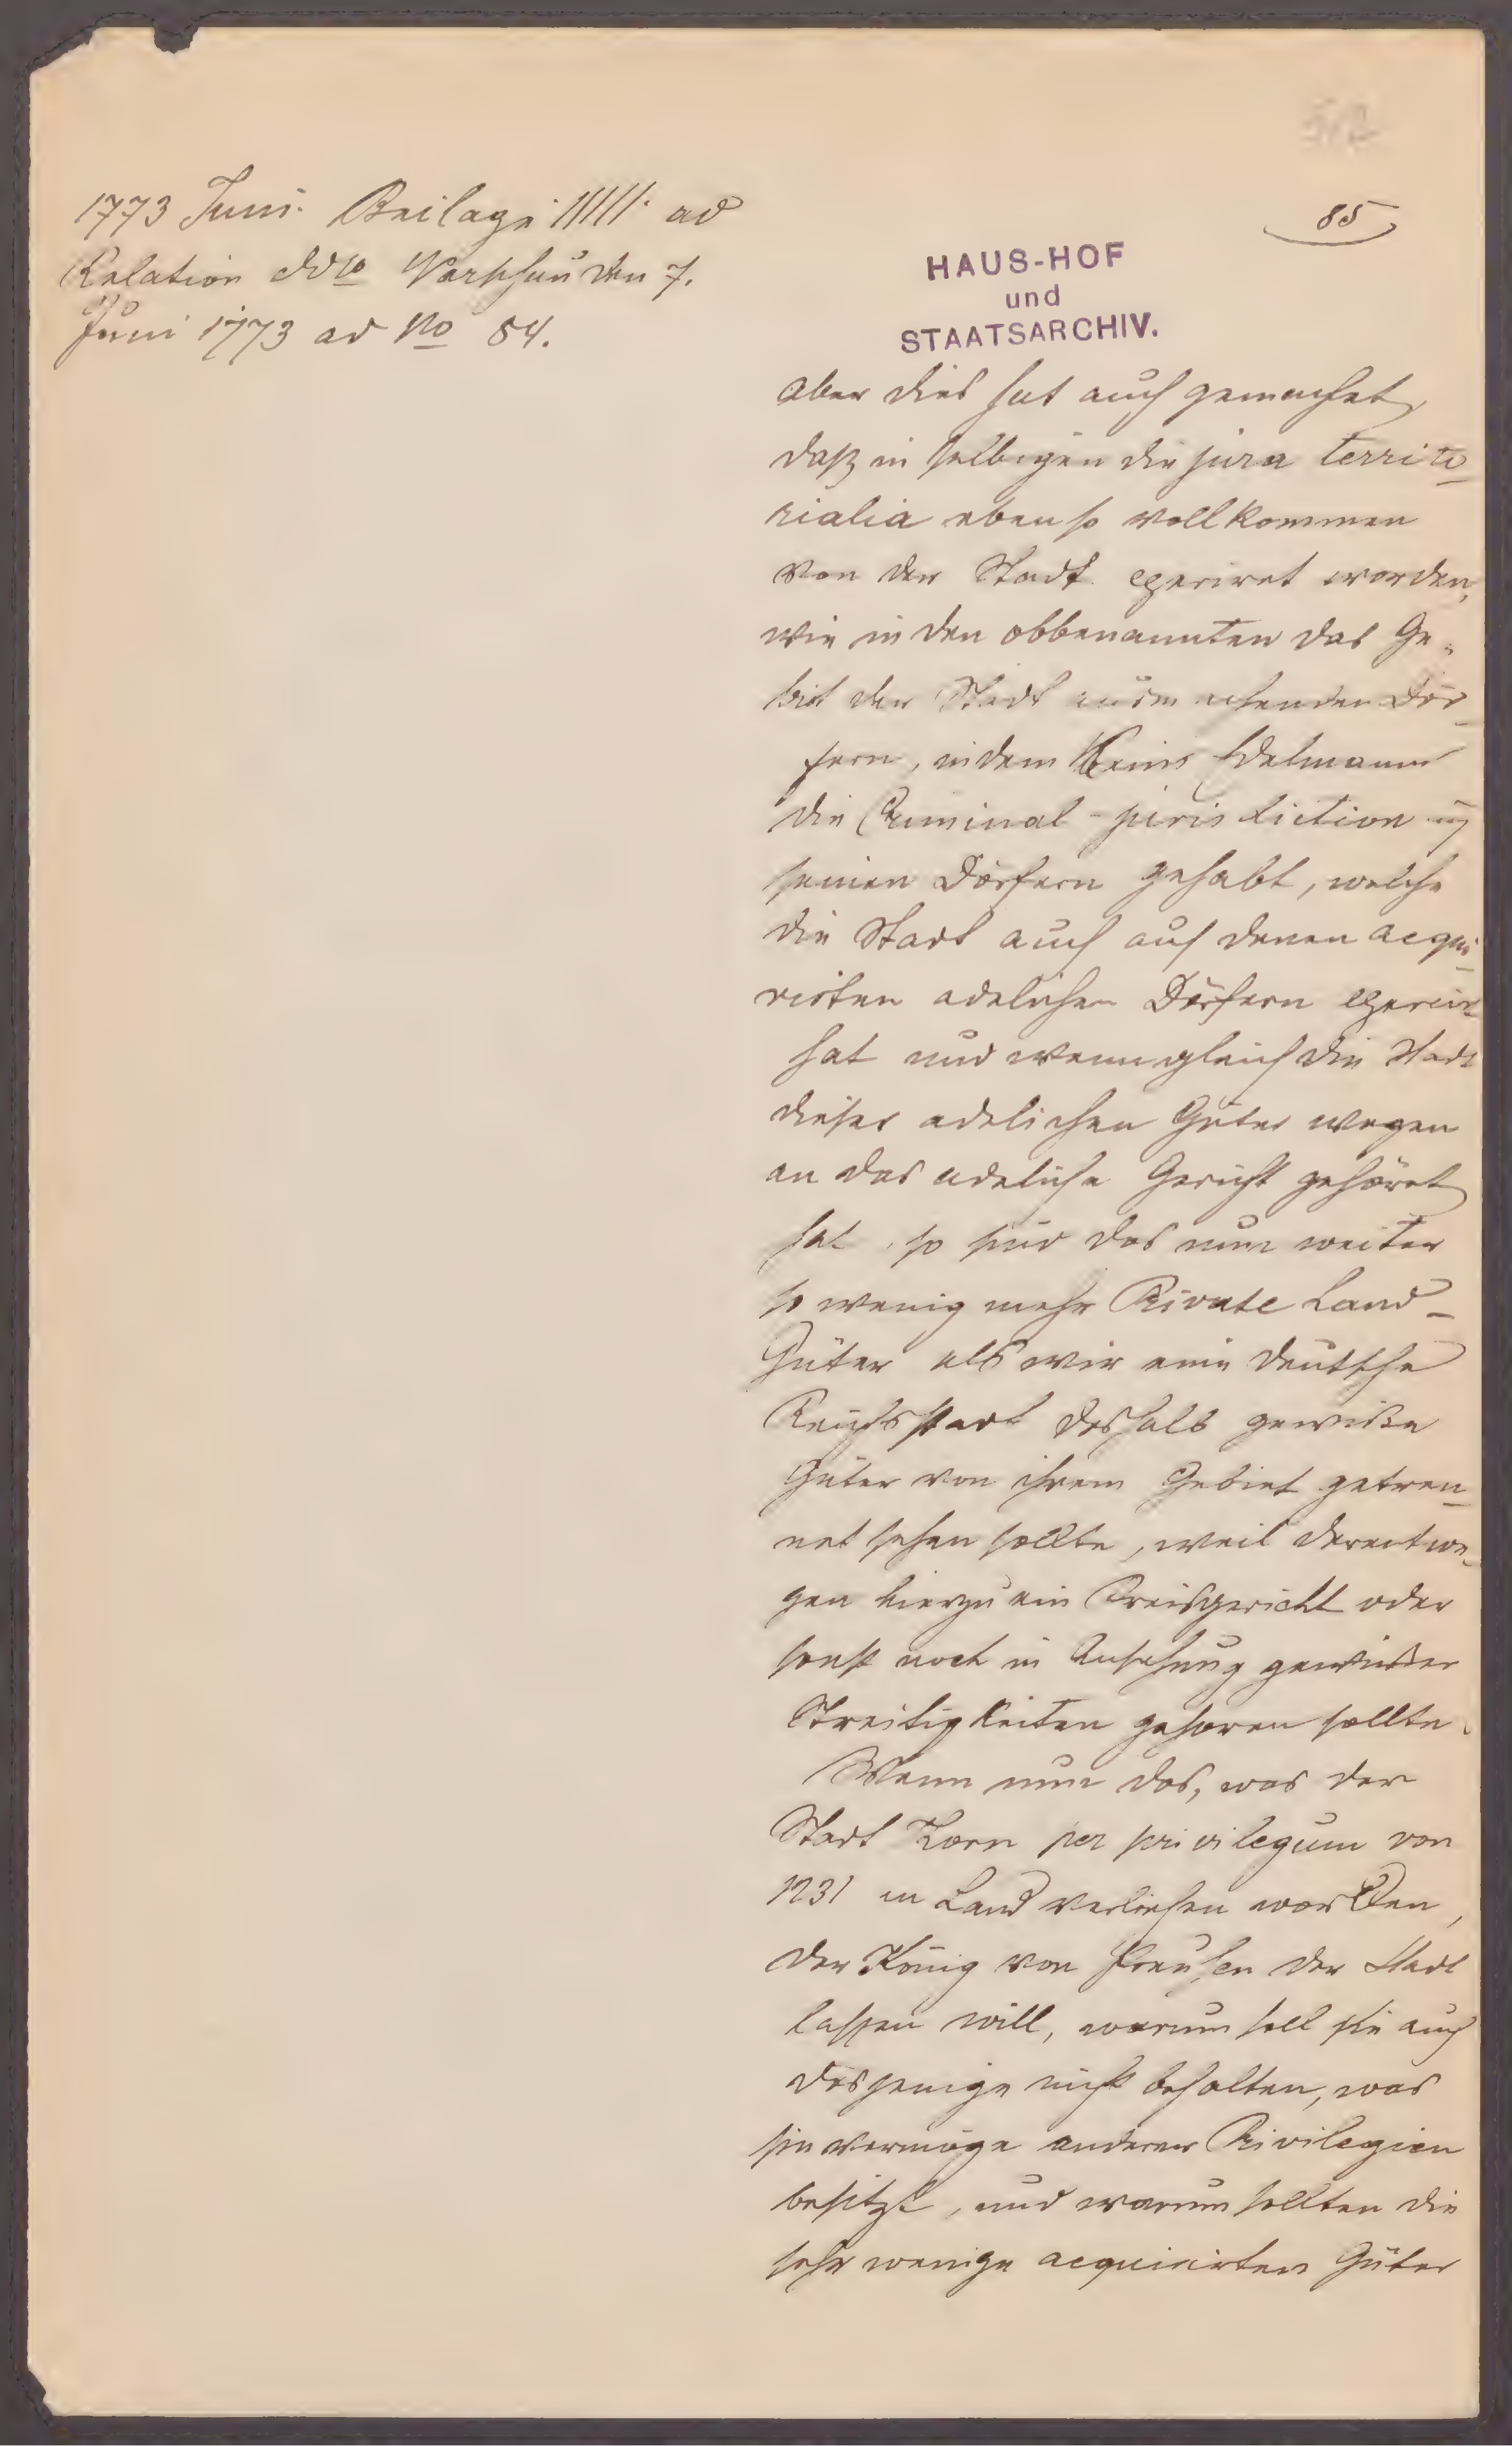 1773 Juni. Beilage ad
Relation ddto Warschau den 7.
Juni 1773 ad No 54.
85
HAUS-HOF
und
STAATSARCHIV.
aber dies hat auch gemachet,
daß in selbigen die jura territo-
rialia ebenso vollkommen
von der Stadt exerciret worden,
wie in den obbenannten das Ge-
biet der Stadt ausmachenden Dör-
fern, indem kein Edelmann
die Criminal-jurisdiction in
seinen Dörfern gehabt, welche
die Stadt auch auf denen acqui-
rirten adelichen Dörfern exercirt
hat und wenn gleich die Stadt
dieser adelichen Güter wegen
an das adeliche Gericht gehöret
hat, so sind das nun weiter
so wenig mehr Private Land-
Güter als wir eine deutsche
Reichsstadt deshalb gewiße
Güter von ihrem Gebiet getren-
net sehen sollte, weil derentwe-
gen hierzu ein Kreisgericht oder
sonst noch in Ansehung gewißer
Streitigkeiten gehören sollte.
Wenn nun das, was der
Stadt Torn per privilegium von
1231 an Land verliehen worden,
der König von Preußen der Stadt
lassen will, warum soll sie auch
dasjenige nicht behalten, was
sie vermöge anderer Privilegien
besitzt, und warum sollten die
sehr wenige acquirirten Güter